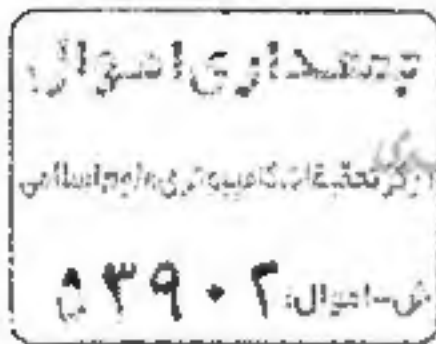 جمعداری اموال
مرکز تحقیقات کامپیوتری علوم اسلامی
ش-اموال: ۵۳۹۰۲